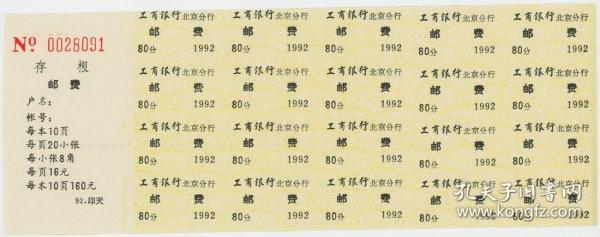 Nº 0028091
存 根
邮 费
户名：
帐号：
每本10页
每页20小张
每小张8角
每页16元
每本10页160元
92.印天
工商银行北京分行 工商银行北京分行 工商银行北京分行 工商银行北京分行 工商银行北京分行
邮 费 邮 费 邮 费 邮 费 邮 费
80分 1992 80分 1992 80分 1992 80分 1992 80分 1992
工商银行北京分行 工商银行北京分行 工商银行北京分行 工商银行北京分行 工商银行北京分行
邮 费 邮 费 邮 费 邮 费 邮 费
80分 1992 80分 1992 80分 1992 80分 1992 80分 1992
工商银行北京分行 工商银行北京分行 工商银行北京分行 工商银行北京分行 工商银行北京分行
邮 费 邮 费 邮 费 邮 费 邮 费
80分 1992 80分 1992 80分 1992 80分 1992 80分 1992
工商银行北京分行 工商银行北京分行 工商银行北京分行 工商银行北京分行 工商银行北京分行
邮 费 邮 费 邮 费 邮 费 邮 费
80分 1992 80分 1992 80分 1992 80分 1992 80分 1992
孔夫子旧书网